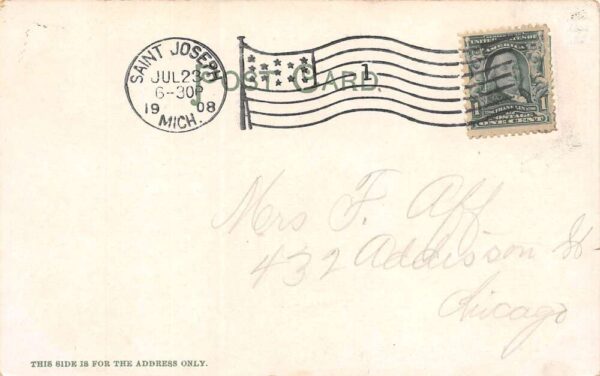 SAINT JOSEPH
JUL 23
6-30P
1908
MICH.
POST CARD.
1
UNITED STATES OF AMERICA
1 FRANKLIN 1
POSTAGE
ONE CENT
Mrs F. Aff
432 Addisson St
Chicago
THIS SIDE IS FOR THE ADDRESS ONLY.